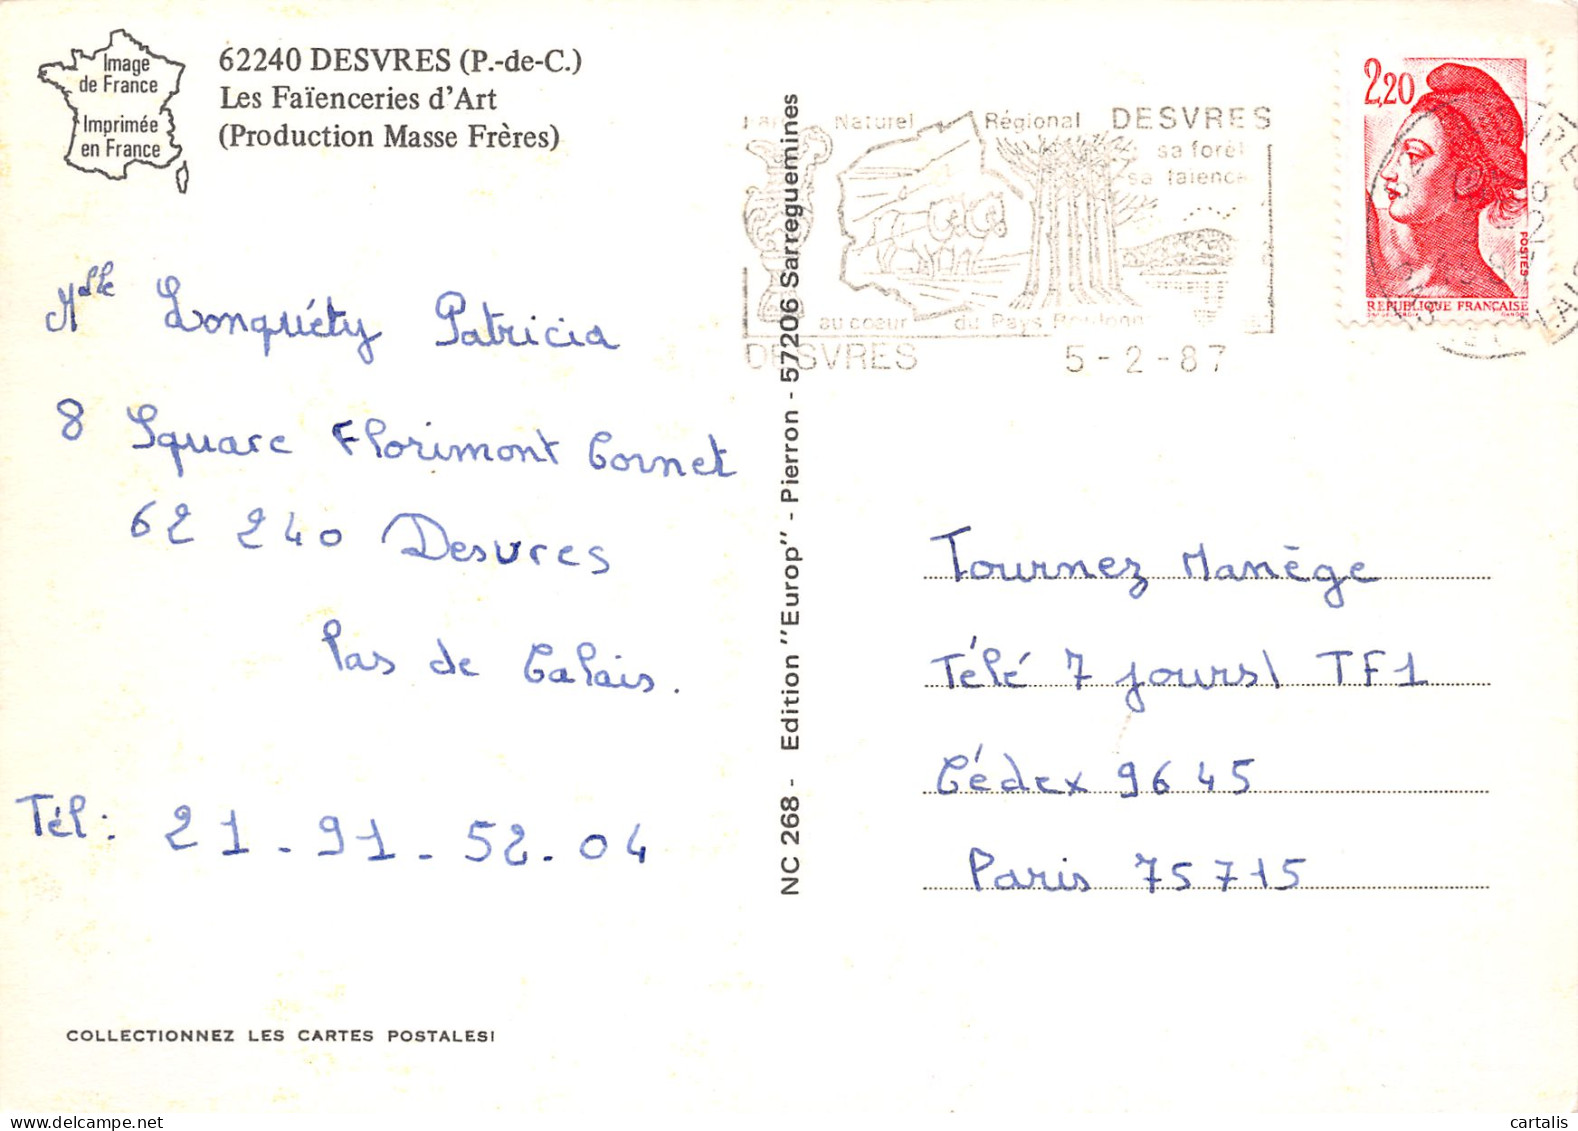 Image
de France
Imprimée
en France
62240 DESVRES (P.-de-C.)
Les Faïenceries d'Art
(Production Masse Frères)
Naturel Régional DESVRES
sa forêt
sa faïence
au coeur du Pays
DESVRES 5-2-87
2,20
POSTES
REPUBLIQUE FRANÇAISE
Mlle Lonquéty Patricia
8 Square Florimont Cornet
62 240 Desvres
Pas de Calais.
Tél: 21-91-52-04
COLLECTIONNEZ LES CARTES POSTALES!
NC 268 - Edition "Europ" - Pierron - 57206 Sarreguemines
Tournez Manège
Télé 7 jours\ TF1
Cédex 9645
Paris 75715
cartalis
www.delcampe.net